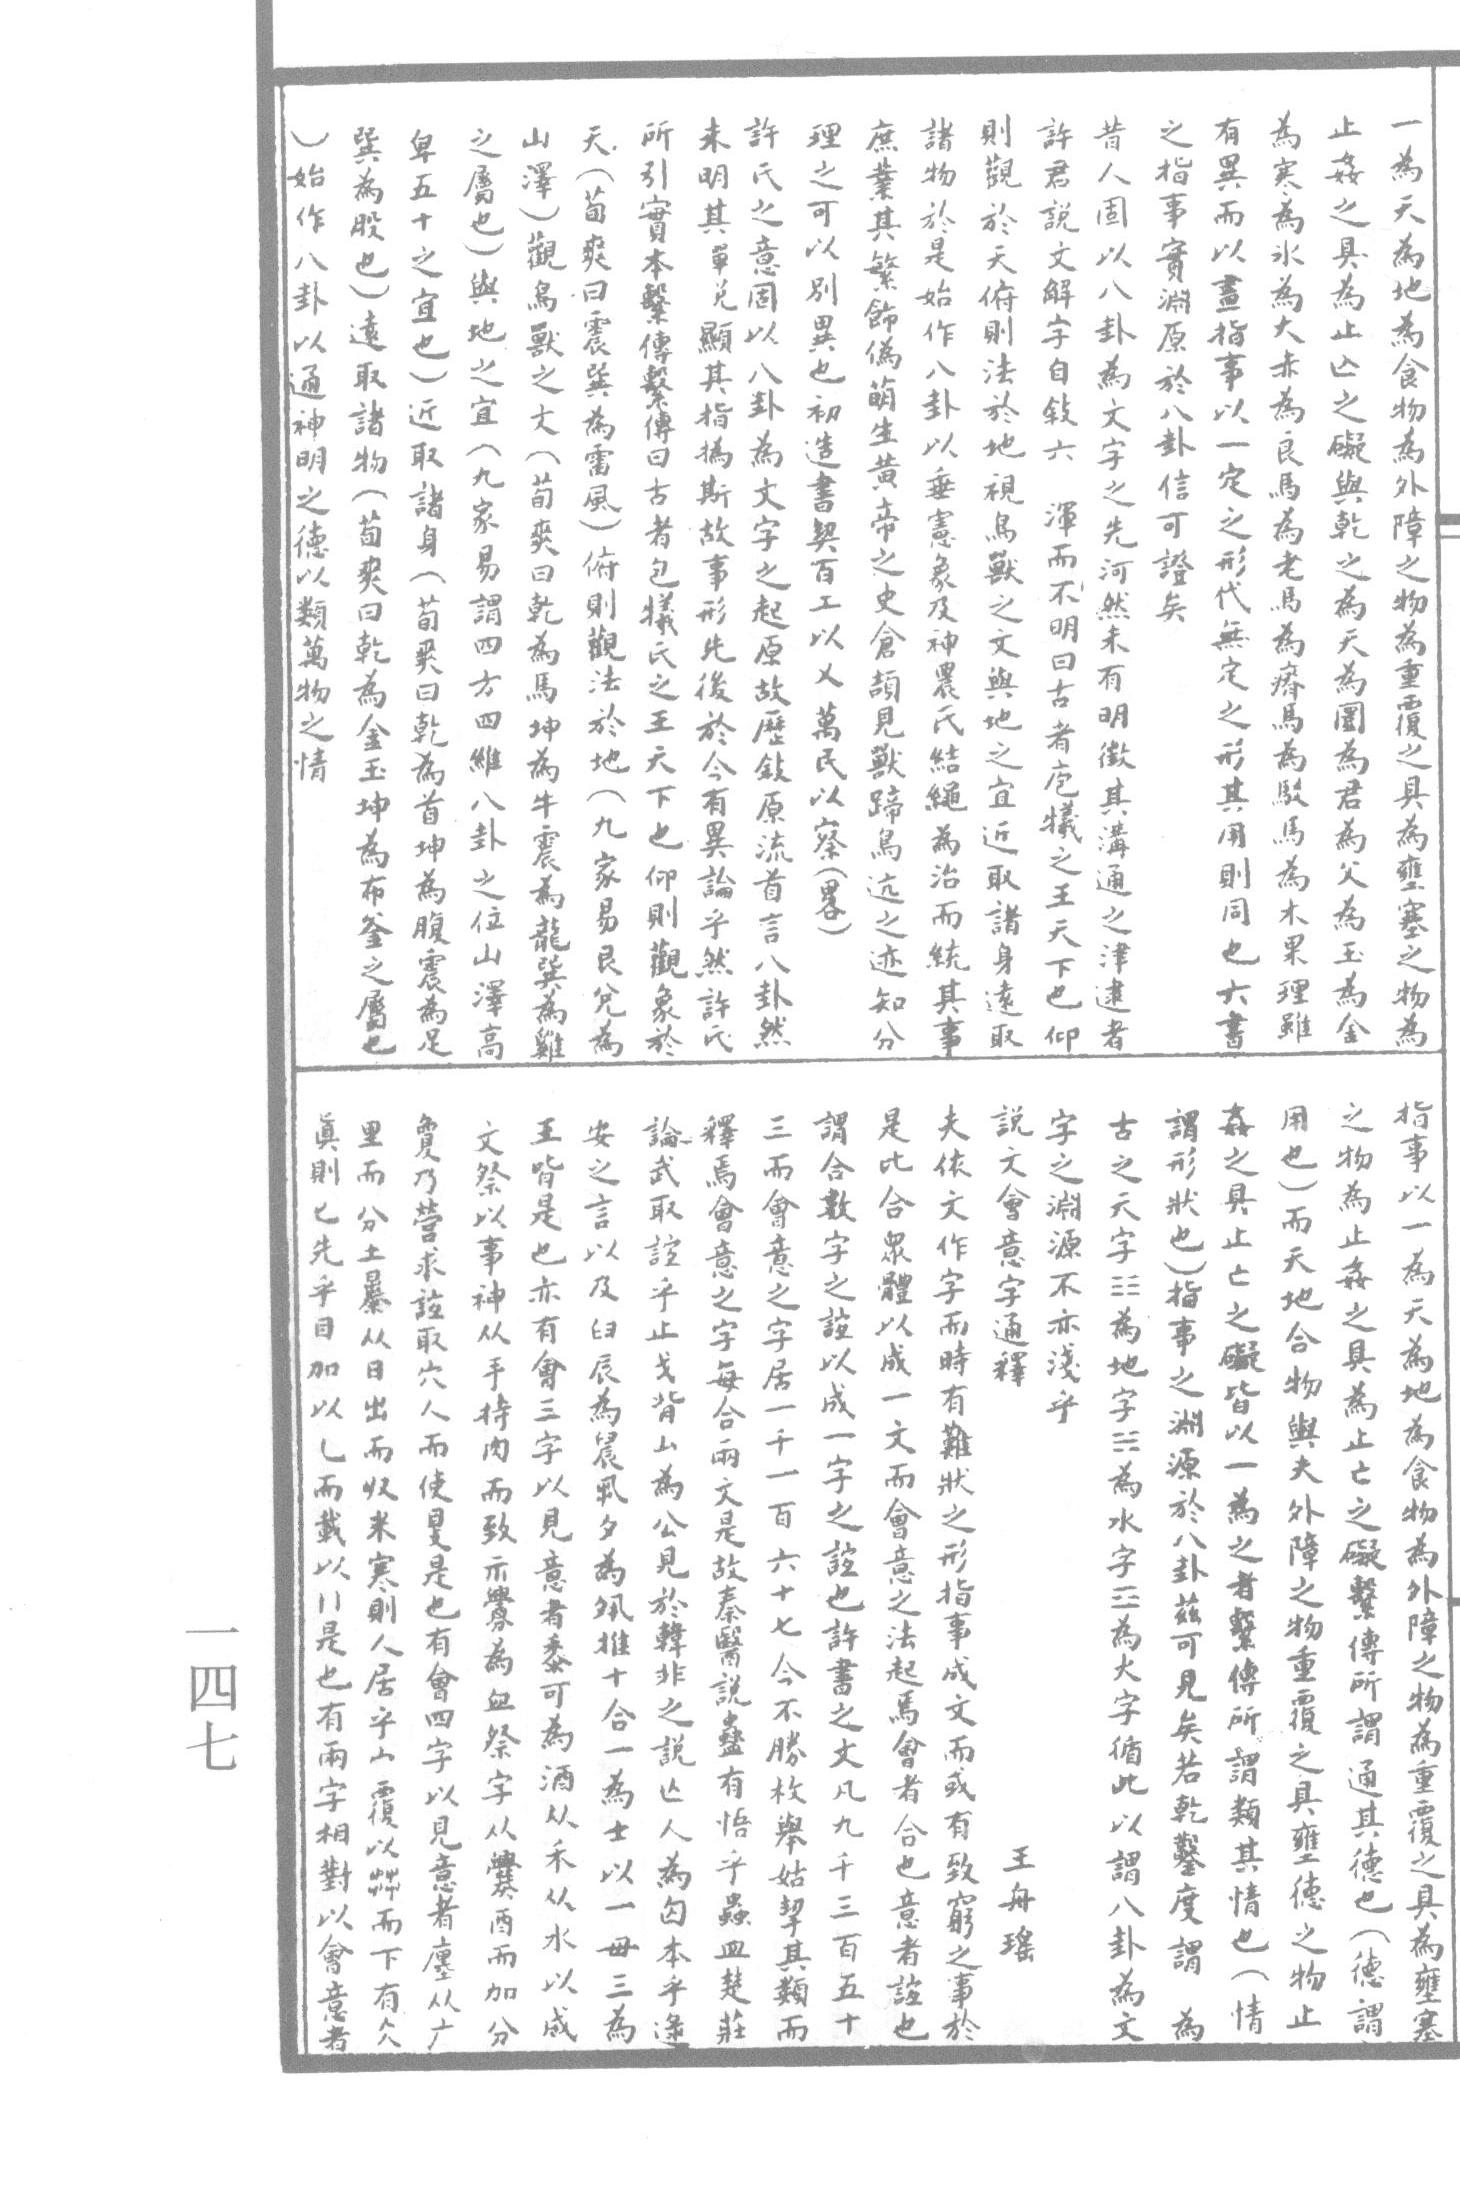 一為天為地為食物為外障之物為重覆之具為壅塞之物為
止姦之具為止亡之礙與乾之為天為圜為君為父為玉為金
為寒為冰為大赤為良馬為老馬為瘠馬為駁馬為木果理雖
有異而以畫指事以一定之形代無定之形其用則同也六書
之指事實淵原於八卦信可證矣
昔人固以八卦為文字之先河然未有明徵其溝通之津逮者
許君說文解字自敘六 渾而不明曰古者庖犧之王天下也仰
則觀於天俯則法於地視鳥獸之文與地之宜近取諸身遠取
諸物於是始作八卦以垂憲象及神農氏結繩為治而統其事
庶業其繁飾偽萌生黃帝之史倉頡見獸蹄鳥迒之迹知分
理之可以別異也初造書契百工以乂萬民以察（畧）
許氏之意固以八卦為文字之起原故歷敘原流首言八卦然
未明其單兌顯其指撝斯故事形先後於今有異論乎然許氏
所引實本繫傳繫傳曰古者包犧氏之王天下也仰則觀象於
天（荀爽曰震巽為雷風）俯則觀法於地（九家易艮兌為
山澤）觀鳥獸之文（荀爽曰乾為馬坤為牛震為龍巽為雞
之屬也）與地之宜（九家易謂四方四維八卦之位山澤高
卑五十之宜也）近取諸身（荀爽曰乾為首坤為腹震為足
巽為股也）遠取諸物（荀爽曰乾為金玉坤為布釜之屬也
）始作八卦以通神明之德以類萬物之情
指事以一為天為地為食物為外障之物為重覆之具為壅塞
之物為止姦之具為止亡之礙繫傳所謂通其德也（德謂
用也）而天地合物與夫外障之物重覆之具壅德之物止
姦之具止亡之礙皆以一為之者繫傳所謂類其情也（情
謂形狀也）指事之淵源於八卦茲可見矣若乾鑿度謂 為
古之天字☷為地字☵為水字☲為火字循此以謂八卦為文
字之淵源不亦淺乎
說文會意字通釋 王舟瑤
夫依文作字而時有難狀之形指事成文而或有致窮之事於
是比合眾體以成一文而會意之法起焉會者合也意者誼也
謂合數字之誼以成一字之誼也許書之文凡九千三百五十
三而會意之字居一千一百六十七今不勝枚舉姑挈其類而
釋焉會意之字每合兩文是故秦醫說蠱有悟乎蟲皿楚莊
論武取誼乎止戈背厶為公見於韓非之說亾人為匃本乎逯
安之言以及臼辰為晨夙夕為夙推十合一為士以一毌三為
王皆是也亦有會三字以見意者黍可為酒从禾从水以成
文祭以事神从手持肉而致示釁為血祭字从爨酉而加分
敻乃營求誼取穴人而使㫗是也有會四字以見意者廛从广
里而分土㬥从日出而収米寒則人居乎宀覆以茻而下有仌
眞則匕先乎目加以乚而載以八是也有兩字相對以會意者
一四七